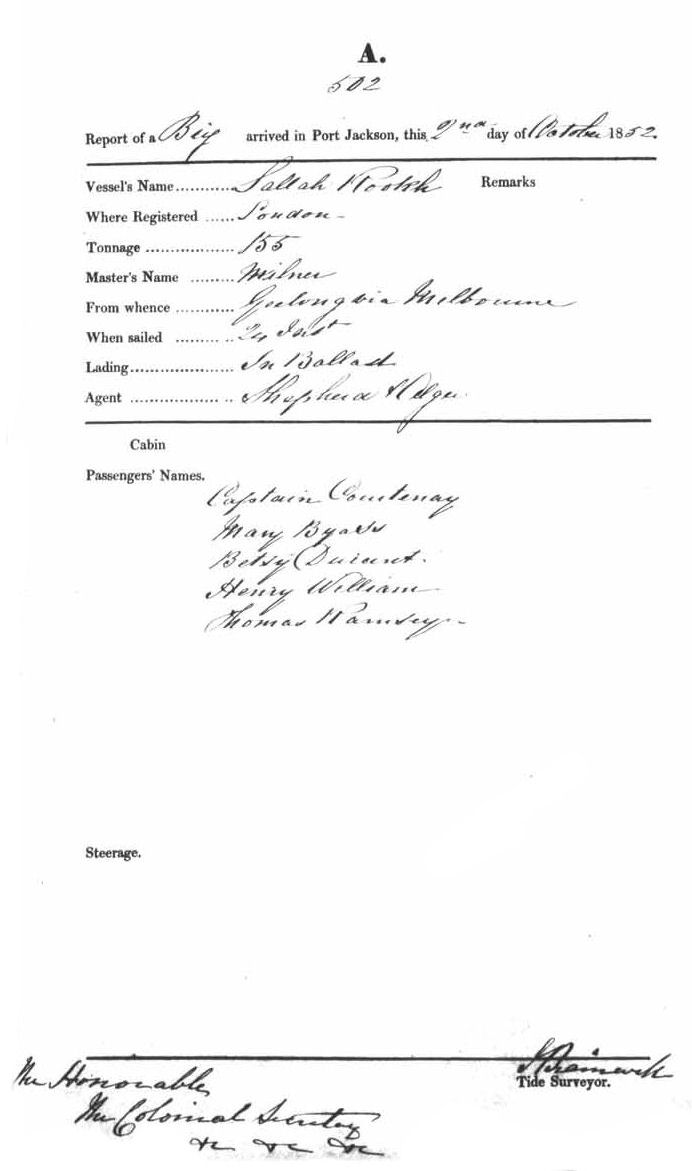 A.
502
Report of a Brig arrived in Port Jackson, this 2nd day of October 1852.
Vessel's Name............ Lallah Rookh Remarks
Where Registered ...... London -
Tonnage .................. 155
Master's Name ......... Milner
From whence ............ Geelong via Melbourne
When sailed ......... .. 24 Inst
Lading..................... In Ballast
Agent .................. .. Shepherd & Alger
Cabin
Passengers' Names.
Captain Courtenay
Mary Byass
Betsy Durant.
Henry William
Thomas Ramsey -
Steerage.
Tide Surveyor.
The Honorable
The Colonial Secretary
&c &c &c